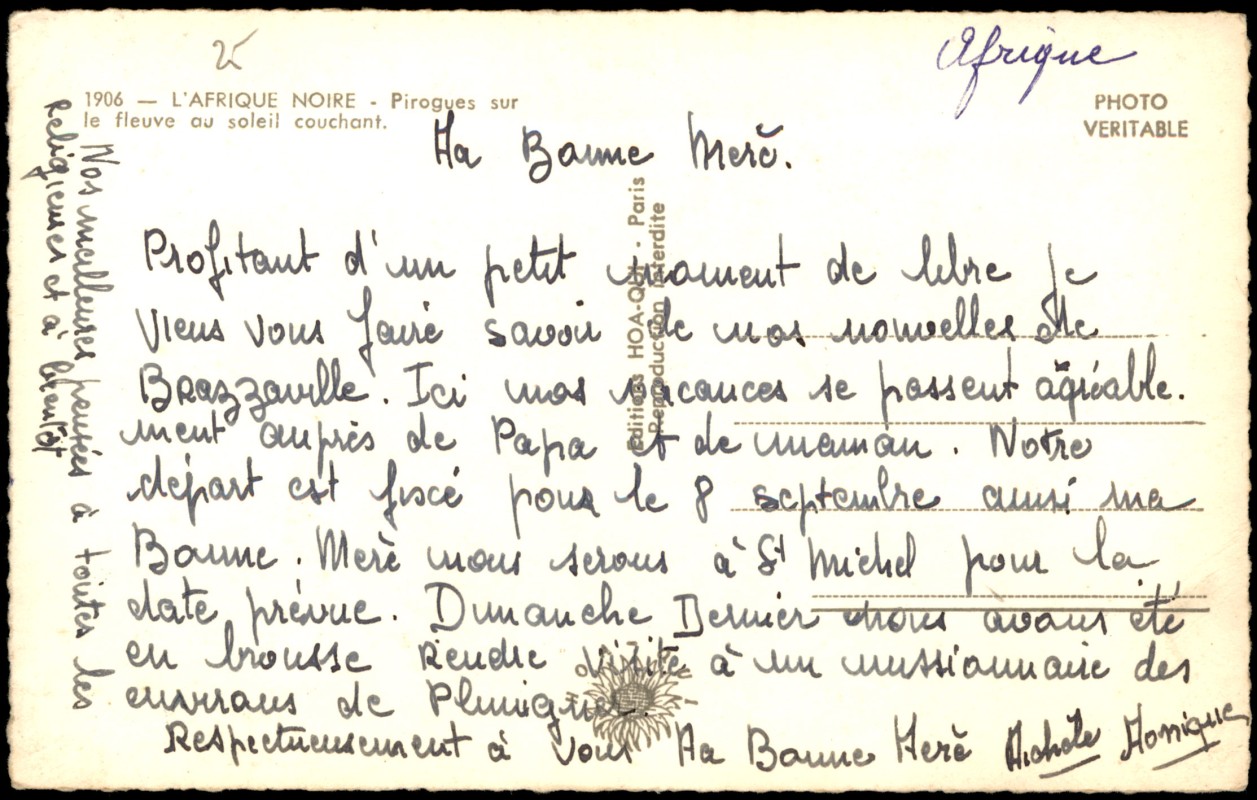 25
Afrique
1906 — L'AFRIQUE NOIRE - Pirogues sur
le fleuve au soleil couchant.
PHOTO
VERITABLE
Ma Bonne Merè.
Profitant d'un petit moment de libre je
viens vous fairè savoir de nos nouvelles de
Brazzaville. Ici nos vacances se passent agréable.
ment auprès de Papa et de maman. Notre
départ est fixé pour le 8 septembre ainsi ma
Bonne. Merè nous serons à St Michel pour la
date prévue. Dimanche Dernier nous avons été
en brousse rendre visite à un missionnaire des
environs de Pluvigner.
Respectueusement à vous Ma Bonne Merè Michèle Monique
Nos meilleures pensées à toutes les
religieuses et à bientôt
Editions HOA-QUI - Paris
Reproduction Interdite